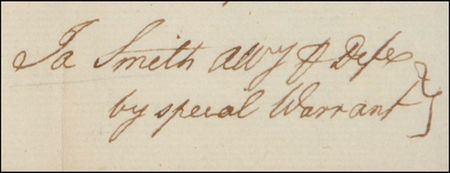 Ja Smith Atty of Defe
by special Warrant }